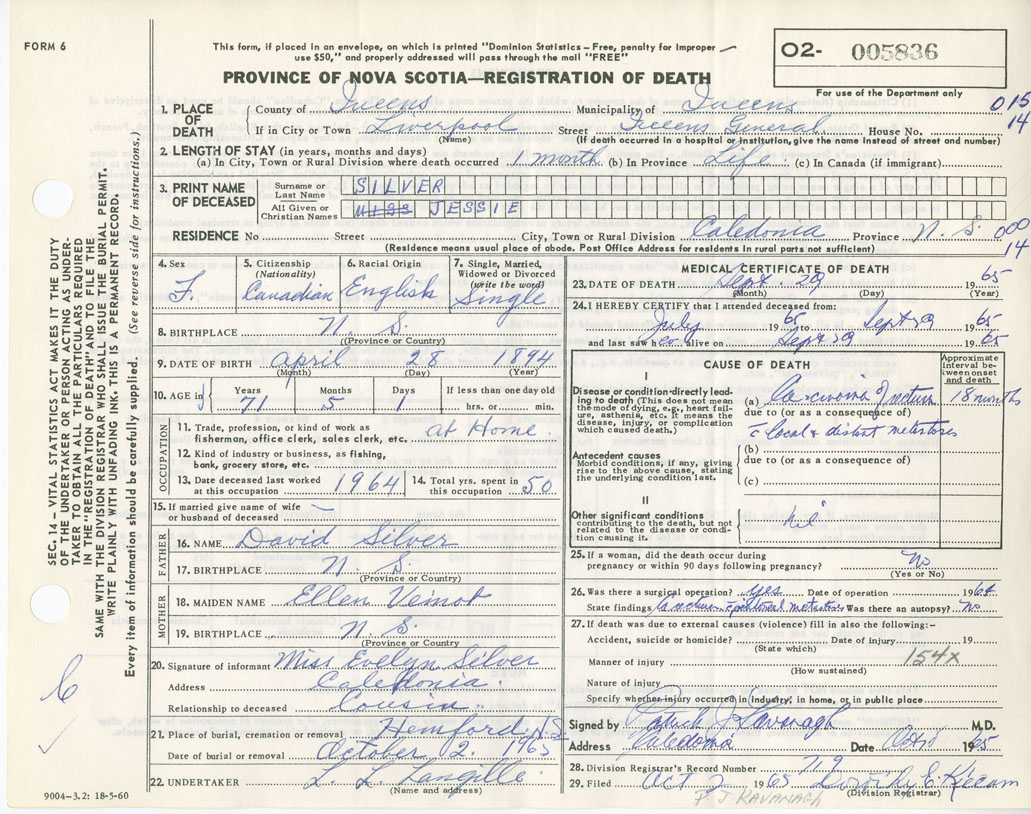 FORM 6
This form, if placed in an envelope, on which is printed "Dominion Statistics – Free, penalty for improper
use $50," and properly addressed will pass through the mail "FREE"
O2- 005836
For use of the Department only
PROVINCE OF NOVA SCOTIA—REGISTRATION OF DEATH
015
14
1. PLACE OF DEATH
County of Queens Municipality of Queens
If in City or Town Liverpool Street Queens General House No.
(Name) (If death occurred in a hospital or institution, give the name instead of street and number)
2. LENGTH OF STAY (in years, months and days)
(a) In City, Town or Rural Division where death occurred 1 month (b) In Province Life (c) In Canada (if immigrant)
3. PRINT NAME OF DECEASED
Surname or Last Name SILVER
All Given or Christian Names MISS JESSIE
RESIDENCE No Street City, Town or Rural Division Caledonia Province N. S.
000
14
(Residence means usual place of abode. Post Office Address for residents in rural parts not sufficient)
4. Sex F.
5. Citizenship (Nationality) Canadian
6. Racial Origin English
7. Single, Married, Widowed or Divorced (write the word) Single
8. BIRTHPLACE N. S.
(Province or Country)
9. DATE OF BIRTH April 28 1894
(Month) (Day) (Year)
10. AGE in Years 71 Months 5 Days 1 If less than one day old hrs. or min.
OCCUPATION
11. Trade, profession, or kind of work as
fisherman, office clerk, sales clerk, etc. at Home
12. Kind of industry or business, as fishing,
bank, grocery store, etc.
13. Date deceased last worked at this occupation 1964
14. Total yrs. spent in this occupation 50
15. If married give name of wife
or husband of deceased
FATHER
16. NAME David Silver
17. BIRTHPLACE N. S.
(Province or Country)
MOTHER
18. MAIDEN NAME Ellen Veinot
19. BIRTHPLACE N. S.
(Province or Country)
20. Signature of informant Miss Evelyn Silver
Address Caledonia
Relationship to deceased Cousin
21. Place of burial, cremation or removal Hemford N.S.
Date of burial or removal October 2. 1965
22. UNDERTAKER L. L. Langille
(Name and address)
9004-3.2: 18-5-60
MEDICAL CERTIFICATE OF DEATH
23. DATE OF DEATH Sept. 29 1965
(Month) (Day) (Year)
24. I HEREBY CERTIFY that I attended deceased from:
July 1965 to Sept 29 1965
and last saw her alive on Sept 29 1965
CAUSE OF DEATH
Approximate interval between onset and death
I
Disease or condition directly leading to death (This does not mean the mode of dying, e.g., heart failure, asthenia, etc. It means the disease, injury, or complication which caused death.)
(a) Carcinoma of rectum 18 months
due to (or as a consequence of)
c local & distant metastases
Antecedent causes
Morbid conditions, if any, giving rise to the above cause, stating the underlying condition last.
(b)
due to (or as a consequence of)
(c)
II
Other significant conditions contributing to the death, but not related to the disease or condition causing it.
nil
25. If a woman, did the death occur during
pregnancy or within 90 days following pregnancy? No
(Yes or No)
26. Was there a surgical operation? yes Date of operation 1964
State findings Ca rectum peritoneal metastases Was there an autopsy? No
27. If death was due to external causes (violence) fill in also the following:-
Accident, suicide or homicide? Date of injury 19
(State which)
154X
Manner of injury
(How sustained)
Nature of injury
Specify whether injury occurred in industry, in home, or in public place
Signed by Patrick J Kavanagh M.D.
Address Caledonia Date 1965
28. Division Registrar's Record Number 719
29. Filed Oct 2 1965
(Division Registrar)
P J KAVANAGH
SEC. 14 – VITAL STATISTICS ACT MAKES IT THE DUTY
OF THE UNDERTAKER OR PERSON ACTING AS UNDER-
TAKER TO OBTAIN ALL THE PARTICULARS REQUIRED
IN THE "REGISTRATION OF DEATH" AND TO FILE THE
SAME WITH THE DIVISION REGISTRAR WHO SHALL ISSUE THE BURIAL PERMIT.
WRITE PLAINLY WITH UNFADING INK. THIS IS A PERMANENT RECORD.
Every item of information should be carefully supplied. (See reverse side for instructions.)